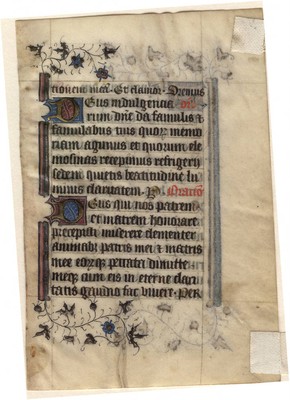 tionem mea. Et clamor. Oremus
Deus indulgencia
rum dne da famulis et
famulabus tuis quor memo
riam agimus et quorum ele
mosinas recepimus refrigerii
sedem quietis beatitudinē lu
minis claritatem. P. Oratio
Deus qui nos patrem
et matrem honorare
precepisti miserere clementer
animabz patris mei et matris
mee eorqz peccata dimitte
meqz cum eis in eterne clari
tatis gaudio fac vivere. Per